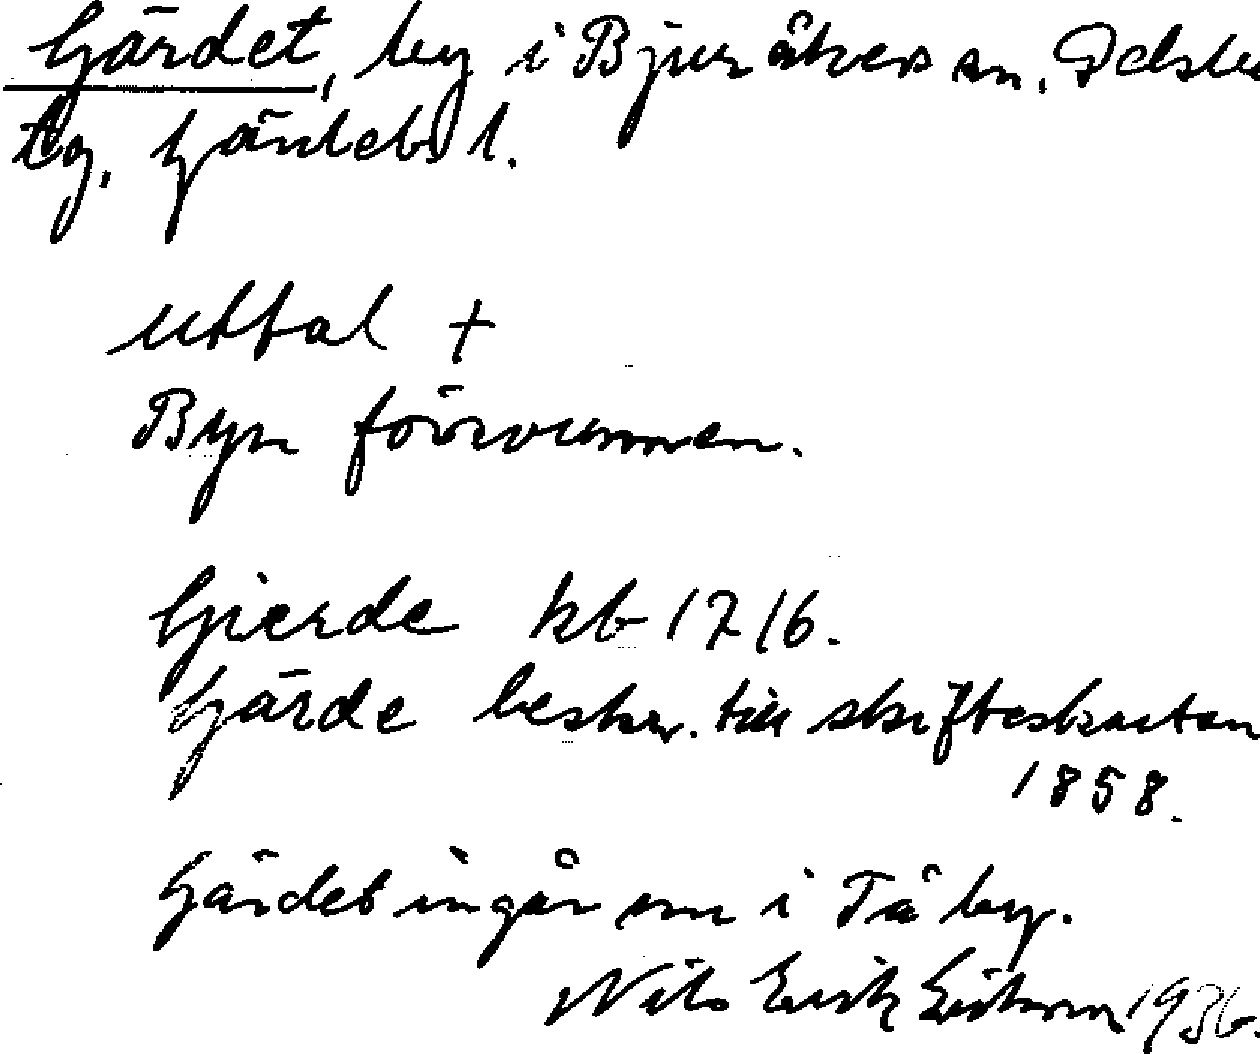 Gärdet, by i Bjuråkers sn.
tg, Gärdet 1.
uttal +
Byn försvunnen.
Gierde kb 1716.
Gärde beskr. till skifteskartan
1858.
Gärdet ingår nu i Tå by.
Nils Erik 1936.